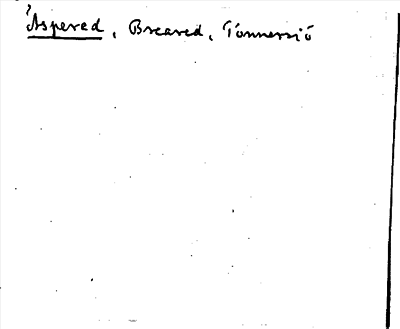 Aspered, Breared, Tönnersjö